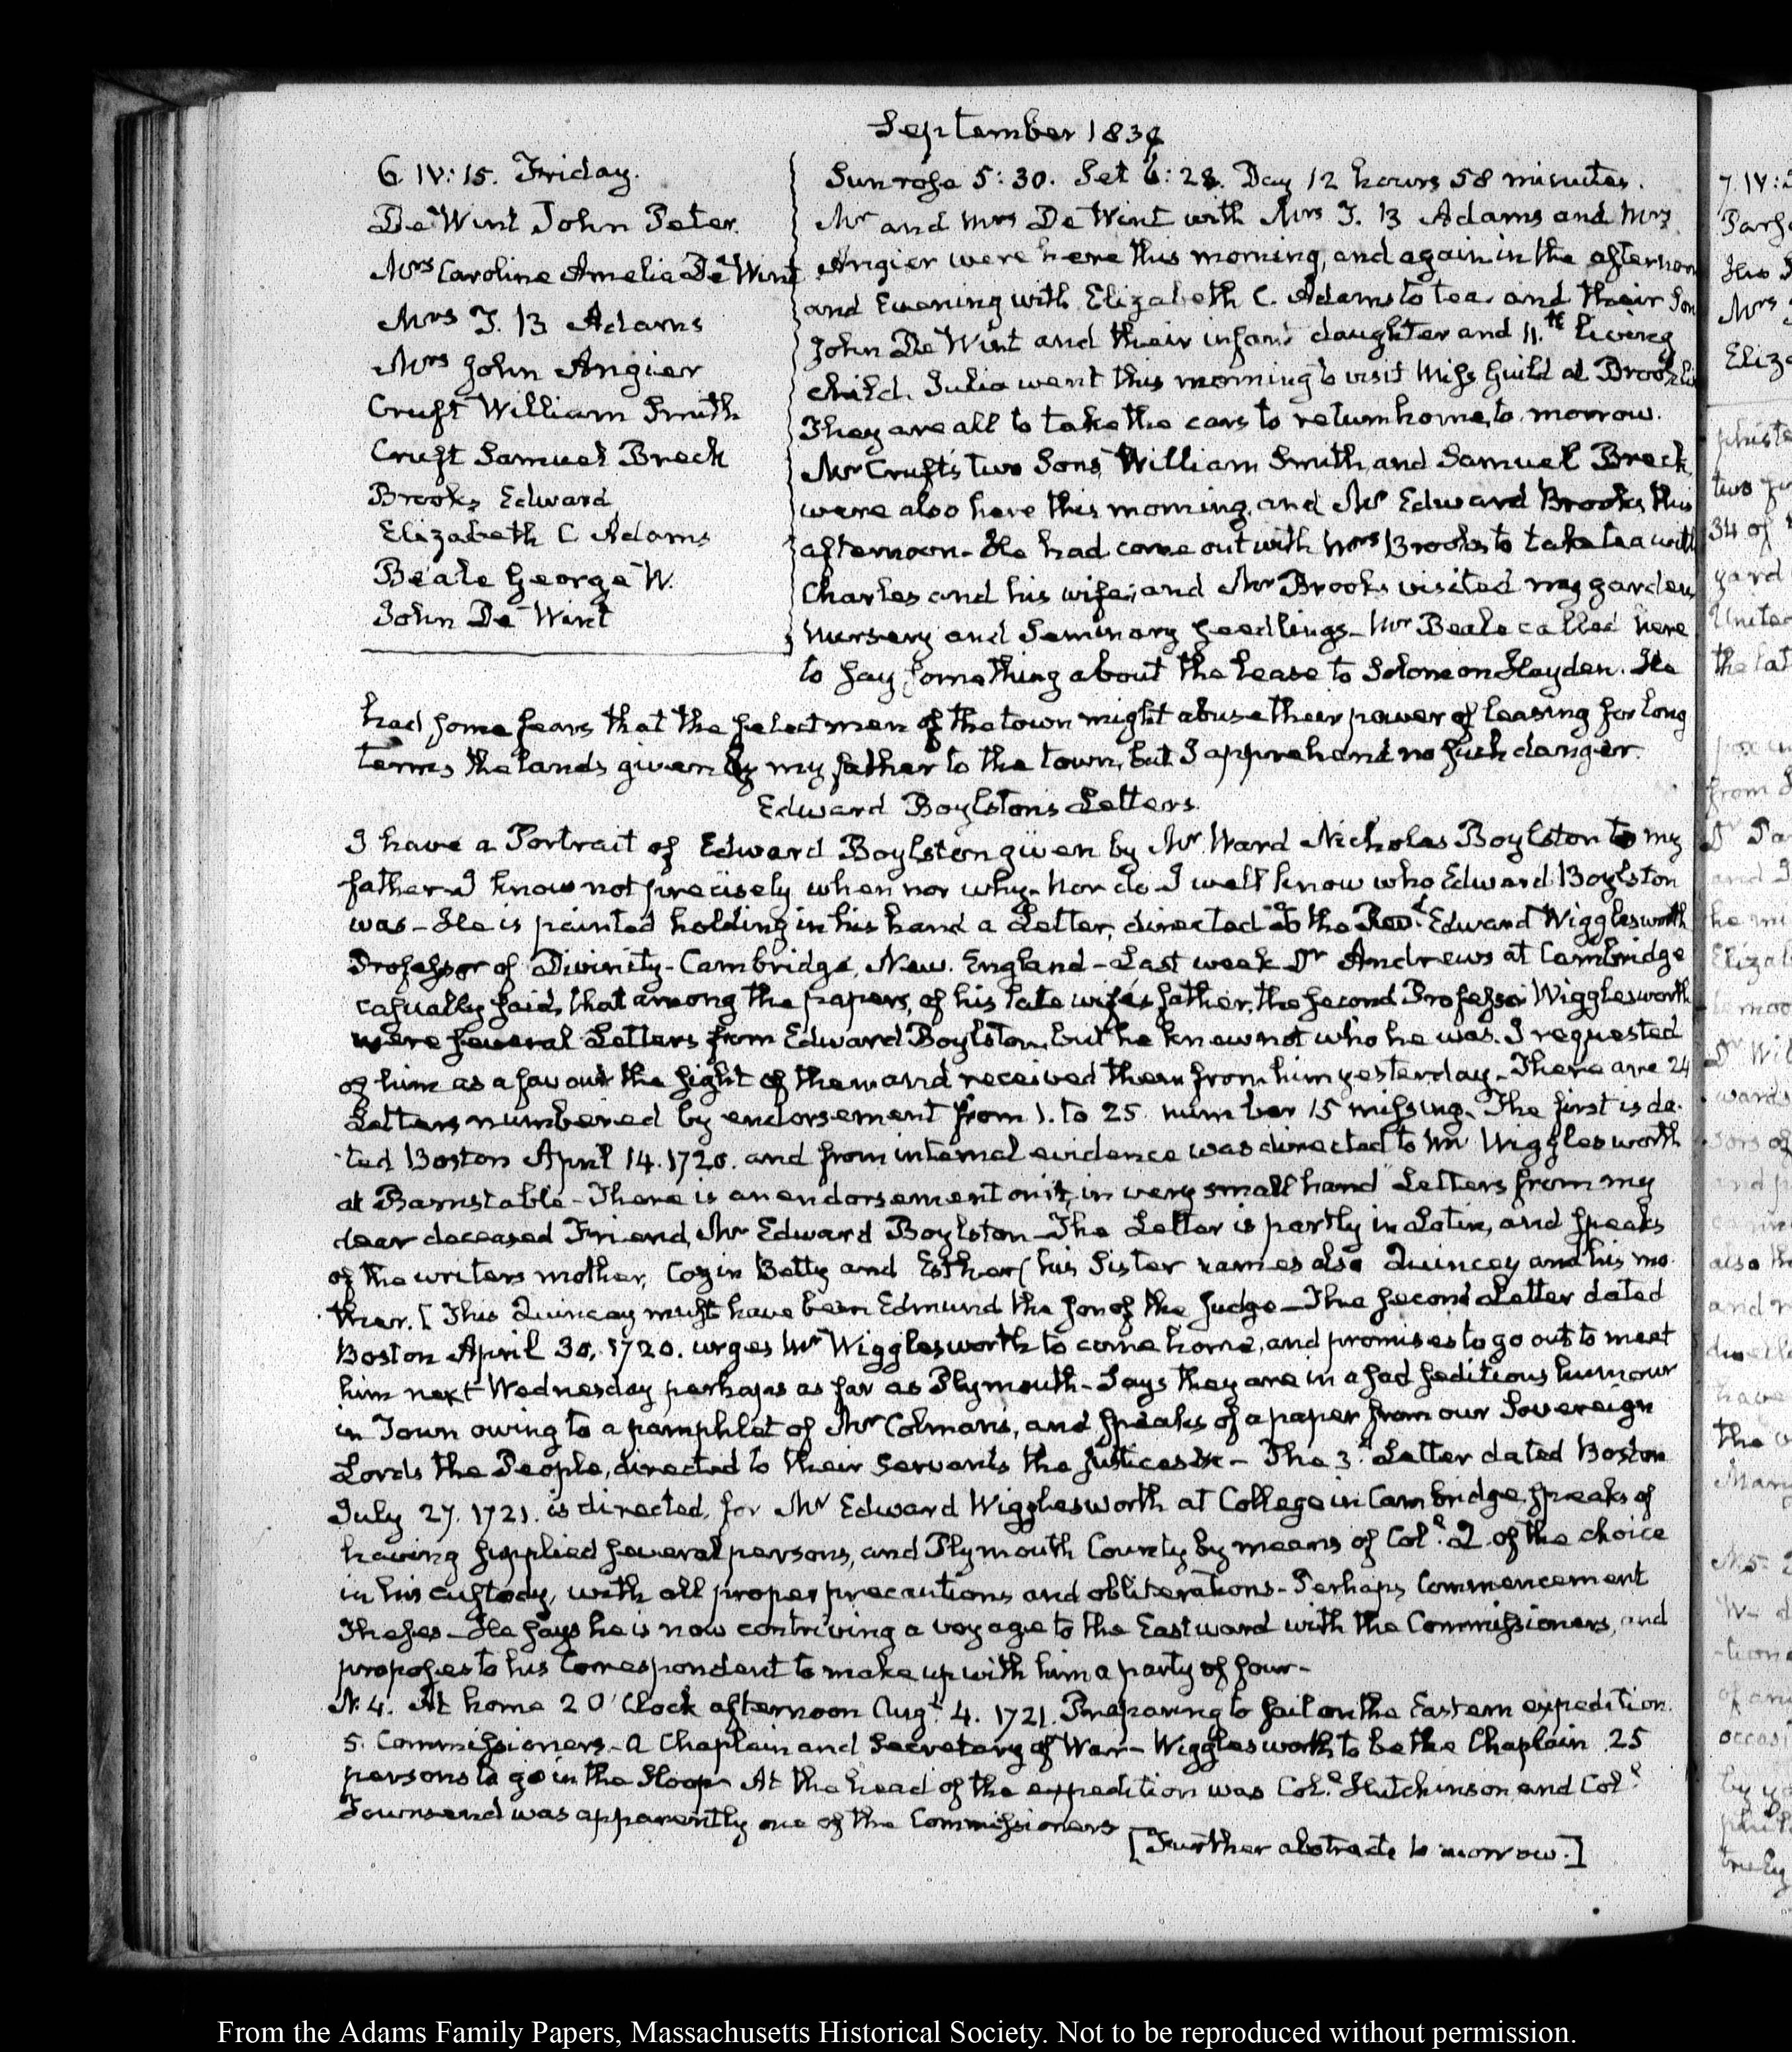 September 1839
6. IV:15. Friday.
De Wint John Peter.
Mrs Caroline Amelia De Wint
Mrs T. B Adams
Mrs John Angier
Cruft William Smith
Cruft Samuel Breck
Brooks Edward
Elizabeth C Adams
Beale George W.
John De Wint
Sun rose 5:30. Set 6:28. Day 12 hours 58 minutes.
Mr and Mrs De Wint with Mrs T. B Adams and Mrs
Angier were here this morning, and again in the afternoon
and Evening with Elizabeth C. Adams to tea and their Son
John De Wint and their infant daughter and 11.th living
child. Julia went this morning to visit Miss Guild at Brookline
They are all to take the cars to return home to morrow.
Mr Cruft's two Sons William Smith and Samuel Breck
were also here this morning, and Mr Edward Brooks this
afternoon—He had come out with Mrs Brooks to take tea with
Charles and his wife; and Mr Brooks visited my garden
nursery and Seminary seedlings—Mr Beale called here
to say something about the Lease to Solomon Hayden. He
had some fears that the select men of the town might abuse their power of leasing for long
terms the lands given by my father to the town, but I apprehend no such danger.
Edward Boylstons Letters.
I have a Portrait of Edward Boylston given by Mr. Ward Nicholas Boylston to my
father—I know not precisely when nor why—Nor do I well know who Edward Boylston
was—He is painted holding in his hand a Letter, directed To the Revd. Edward Wigglesworth
Professor of Divinity—Cambridge, New England—Last week Dr Andrews at Cambridge
casually said, that among the papers, of his late wife's father, the second Professor Wigglesworth
were several Letters from Edward Boylston, but he knew not who he was. I requested
of him as a favour the sight of them and received them from him yesterday—There are 24
Letters numbered by endorsement from 1. to 25 number 15 missing. The first is da-
-ted Boston April 14. 1720. and from internal evidence was directed to Mr Wigglesworth
at Barnstable—There is an endorsement on it, in very small hand Letters from my
dear deceased Friend, Mr Edward Boylston—The Letter is partly in Latin, and speaks
of the writers mother, Cozin Betty and Esther (his Sister names also Quincey and his mo-
ther. [This Quincey must have been Edmund the son of the Judge—The second Letter dated
Boston April 30. 1720. urges Mr Wigglesworth to come home, and promises to go out to meet
him next Wednesday perhaps as far as Plymouth—Says they are in a sad seditious humour
in Town owing to a pamphlet of Mr Colmans, and speaks of a paper from our Sovereign
Lords the People, directed to their Servants the Justices &c—The 3d. Letter dated Boston
July 27. 1721. is directed, for Mr Edward Wigglesworth at College in Cambridge, speaks of
having supplied several persons, and Plymouth County by means of Coll. Q. of the choice
in his custody, with all proper precautions and obliterations—Perhaps Commencement
Theses—He says he is now contriving a voyage to the Eastward with the Commissioners, and
proposes to his Correspondent to make up with him a party of four—
N. 4. At home 2 O'Clock afternoon Augt. 4. 1721. Preparing to sail on the Eastern expedition.
5. Commissioners—a Chaplain and Secretary of War—Wigglesworth to be the Chaplain 25
persons to go in the Sloop—At the head of the expedition was Coll. Hutchinson and Coll.
Townsend was apparently one of the Commissioners
[Further abstracts to morrow.]
From the Adams Family Papers, Massachusetts Historical Society. Not to be reproduced without permission.